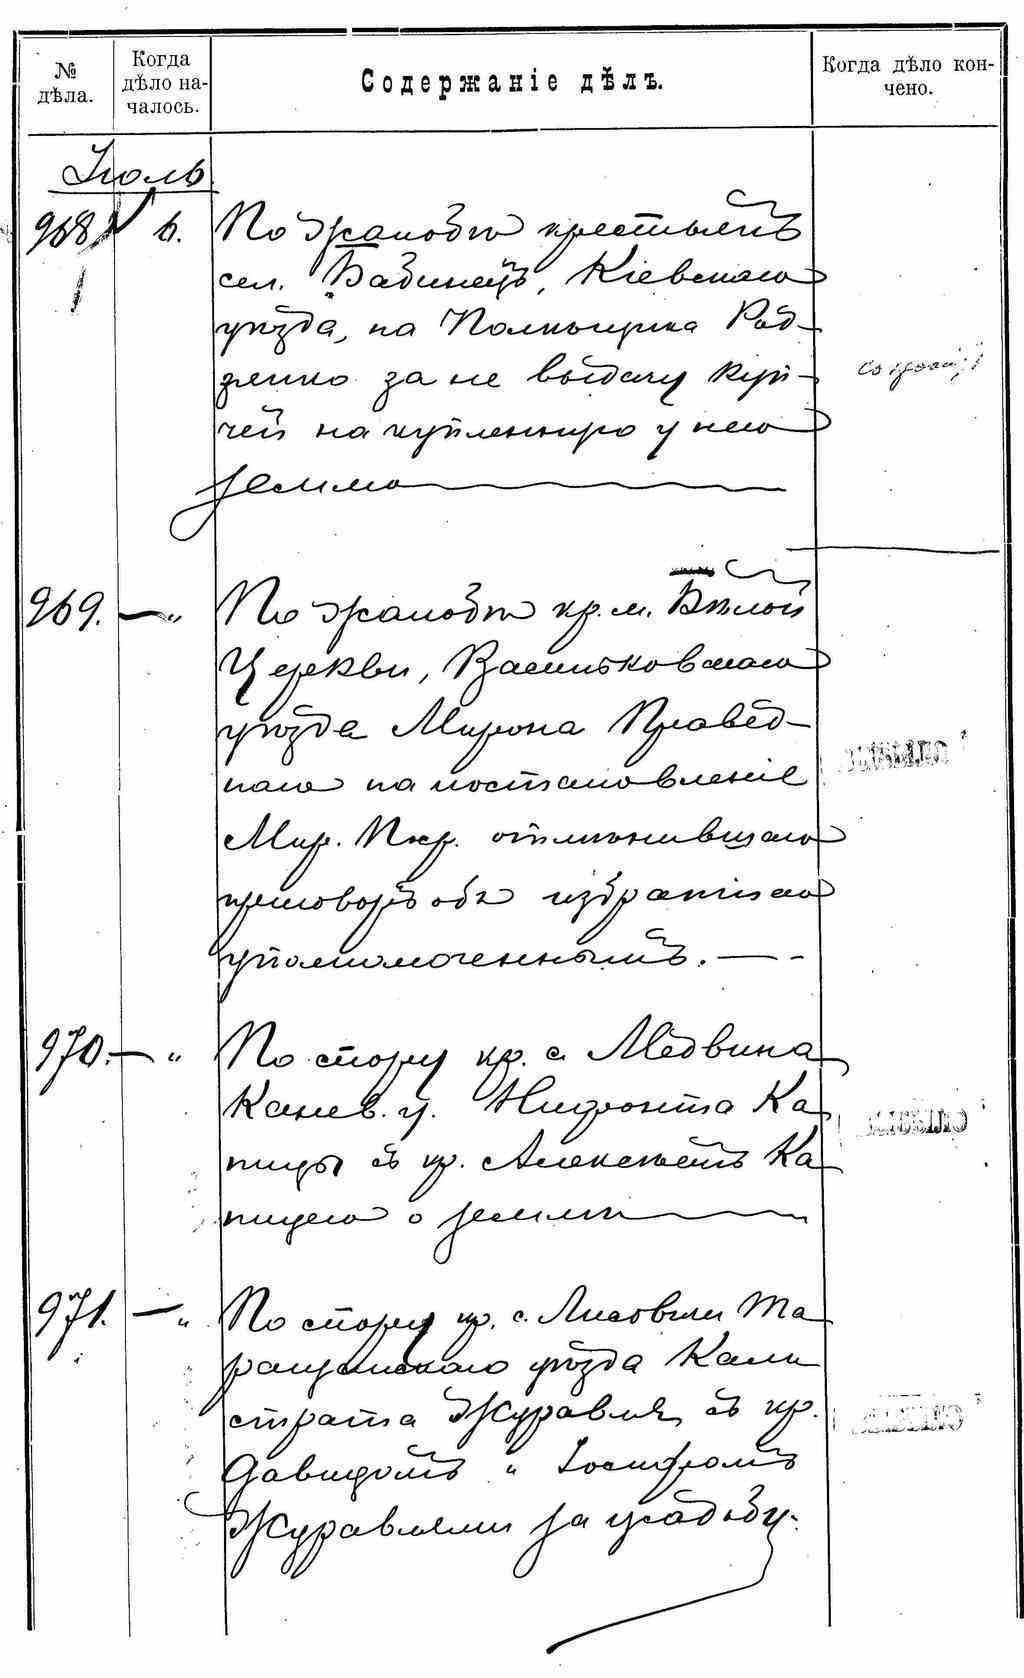 № дѣла.
Когда дѣло на-чалось.
Содержаніе дѣлъ.
Когда дѣло кон-чено.
Іюль
968 6. По жалобѣ крестьянъ
сел. Бабинецъ, Кіевскаго
уѣзда, на Полковника Род-
зянко за не выдачу куп-
чей на купленную у него
землю
969. —„ По жалобѣ кр. м. Бѣлой
Церкви, Васильковскаго
уѣзда Мирона Правед-
наго на постановленіе
Мир. Поср. отклонившаго
приговоръ объ избраніи его
уполномоченнымъ. —
970. —„ По спору кр. с. Медвина
Канев. у. Нифонта Ка
пицы съ кр. Алексѣемъ Ка
пицею о землѣ
971. —„ По спору кр. с. Лисовки Та
ращанскаго уѣзда Кали
страта Журавля съ кр.
Давидомъ и Іосифомъ
Журавлями за усадьбу.